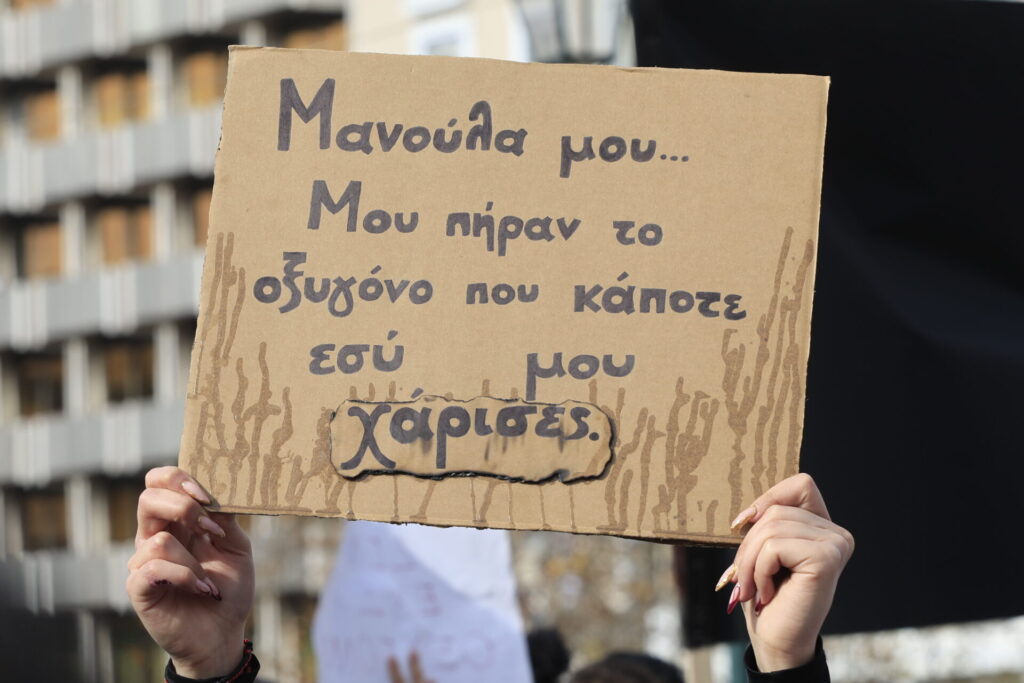 Μανούλα μου...
Μου πήραν το
οξυγόνο που κάποτε
εσύ μου
χάρισες.